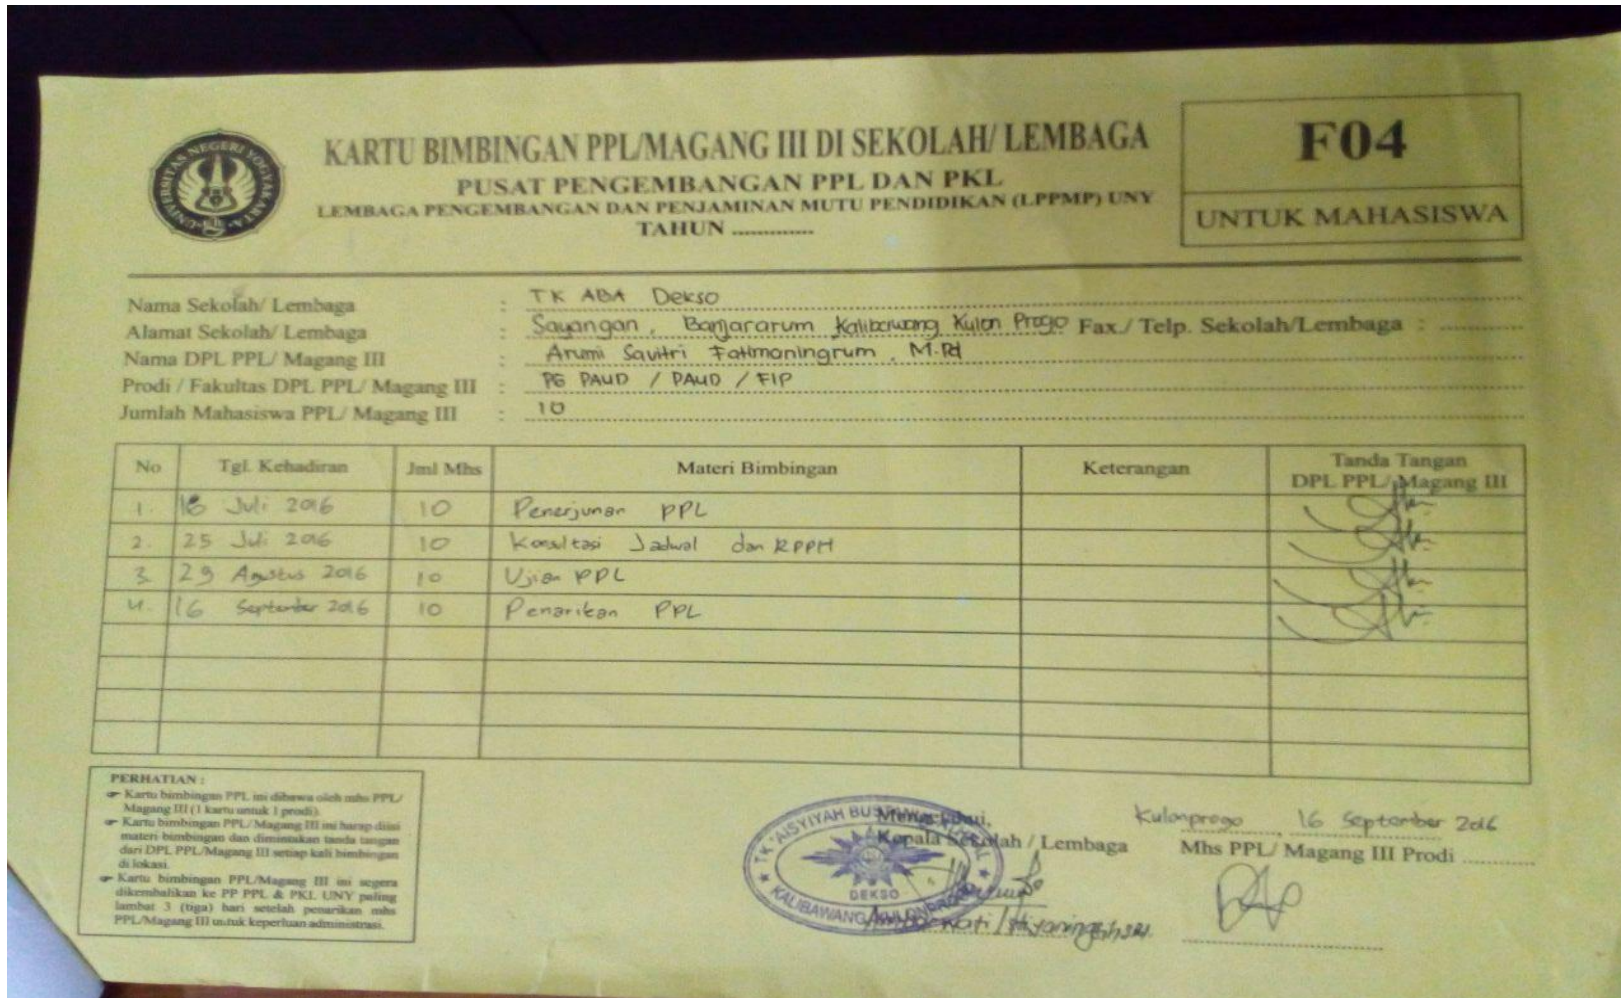 UNIVERSITAS NEGERI YOGYAKARTA
KARTU BIMBINGAN PPL/MAGANG III DI SEKOLAH/ LEMBAGA
PUSAT PENGEMBANGAN PPL DAN PKL
LEMBAGA PENGEMBANGAN DAN PENJAMINAN MUTU PENDIDIKAN (LPPMP) UNY
TAHUN ..............
F04
UNTUK MAHASISWA
Nama Sekolah/ Lembaga : TK ABA Dekso
Alamat Sekolah/ Lembaga : Sayangan, Banjararum Kalibawang Kulon Progo Fax./ Telp. Sekolah/Lembaga : ..............
Nama DPL PPL/ Magang III : Arumi Savitri Fatimaningrum, M.Pd
Prodi / Fakultas DPL PPL/ Magang III : PG PAUD / PAUD / FIP
Jumlah Mahasiswa PPL/ Magang III : 10
No Tgl. Kehadiran Jml Mhs Materi Bimbingan Keterangan Tanda Tangan DPL PPL/ Magang III
1. 18 Juli 2016 10 Penerjunan PPL
2. 25 Juli 2016 10 Konsultasi Jadwal dan RPPH
3. 29 Agustus 2016 10 Ujian PPL
4. 16 September 2016 10 Penarikan PPL
PERHATIAN :
☞ Kartu bimbingan PPL ini dibawa oleh mhs PPL/
Magang III (1 kartu untuk 1 prodi).
☞ Kartu bimbingan PPL/Magang III ini harap diisi
materi bimbingan dan dimintakan tanda tangan
dari DPL PPL/Magang III setiap kali bimbingan
di lokasi.
☞ Kartu bimbingan PPL/Magang III ini segera
dikembalikan ke PP PPL & PKL UNY paling
lambat 3 (tiga) hari setelah penarikan mhs
PPL/Magang III untuk keperluan administrasi.
Mengetahui,
Kepala Sekolah / Lembaga
TK 'AISYIYAH BUSTANUL ATHFAL
DEKSO
KALIBAWANG KULONPROGO
Kulonprogo, 16 September 2016
Mhs PPL/ Magang III Prodi ..............